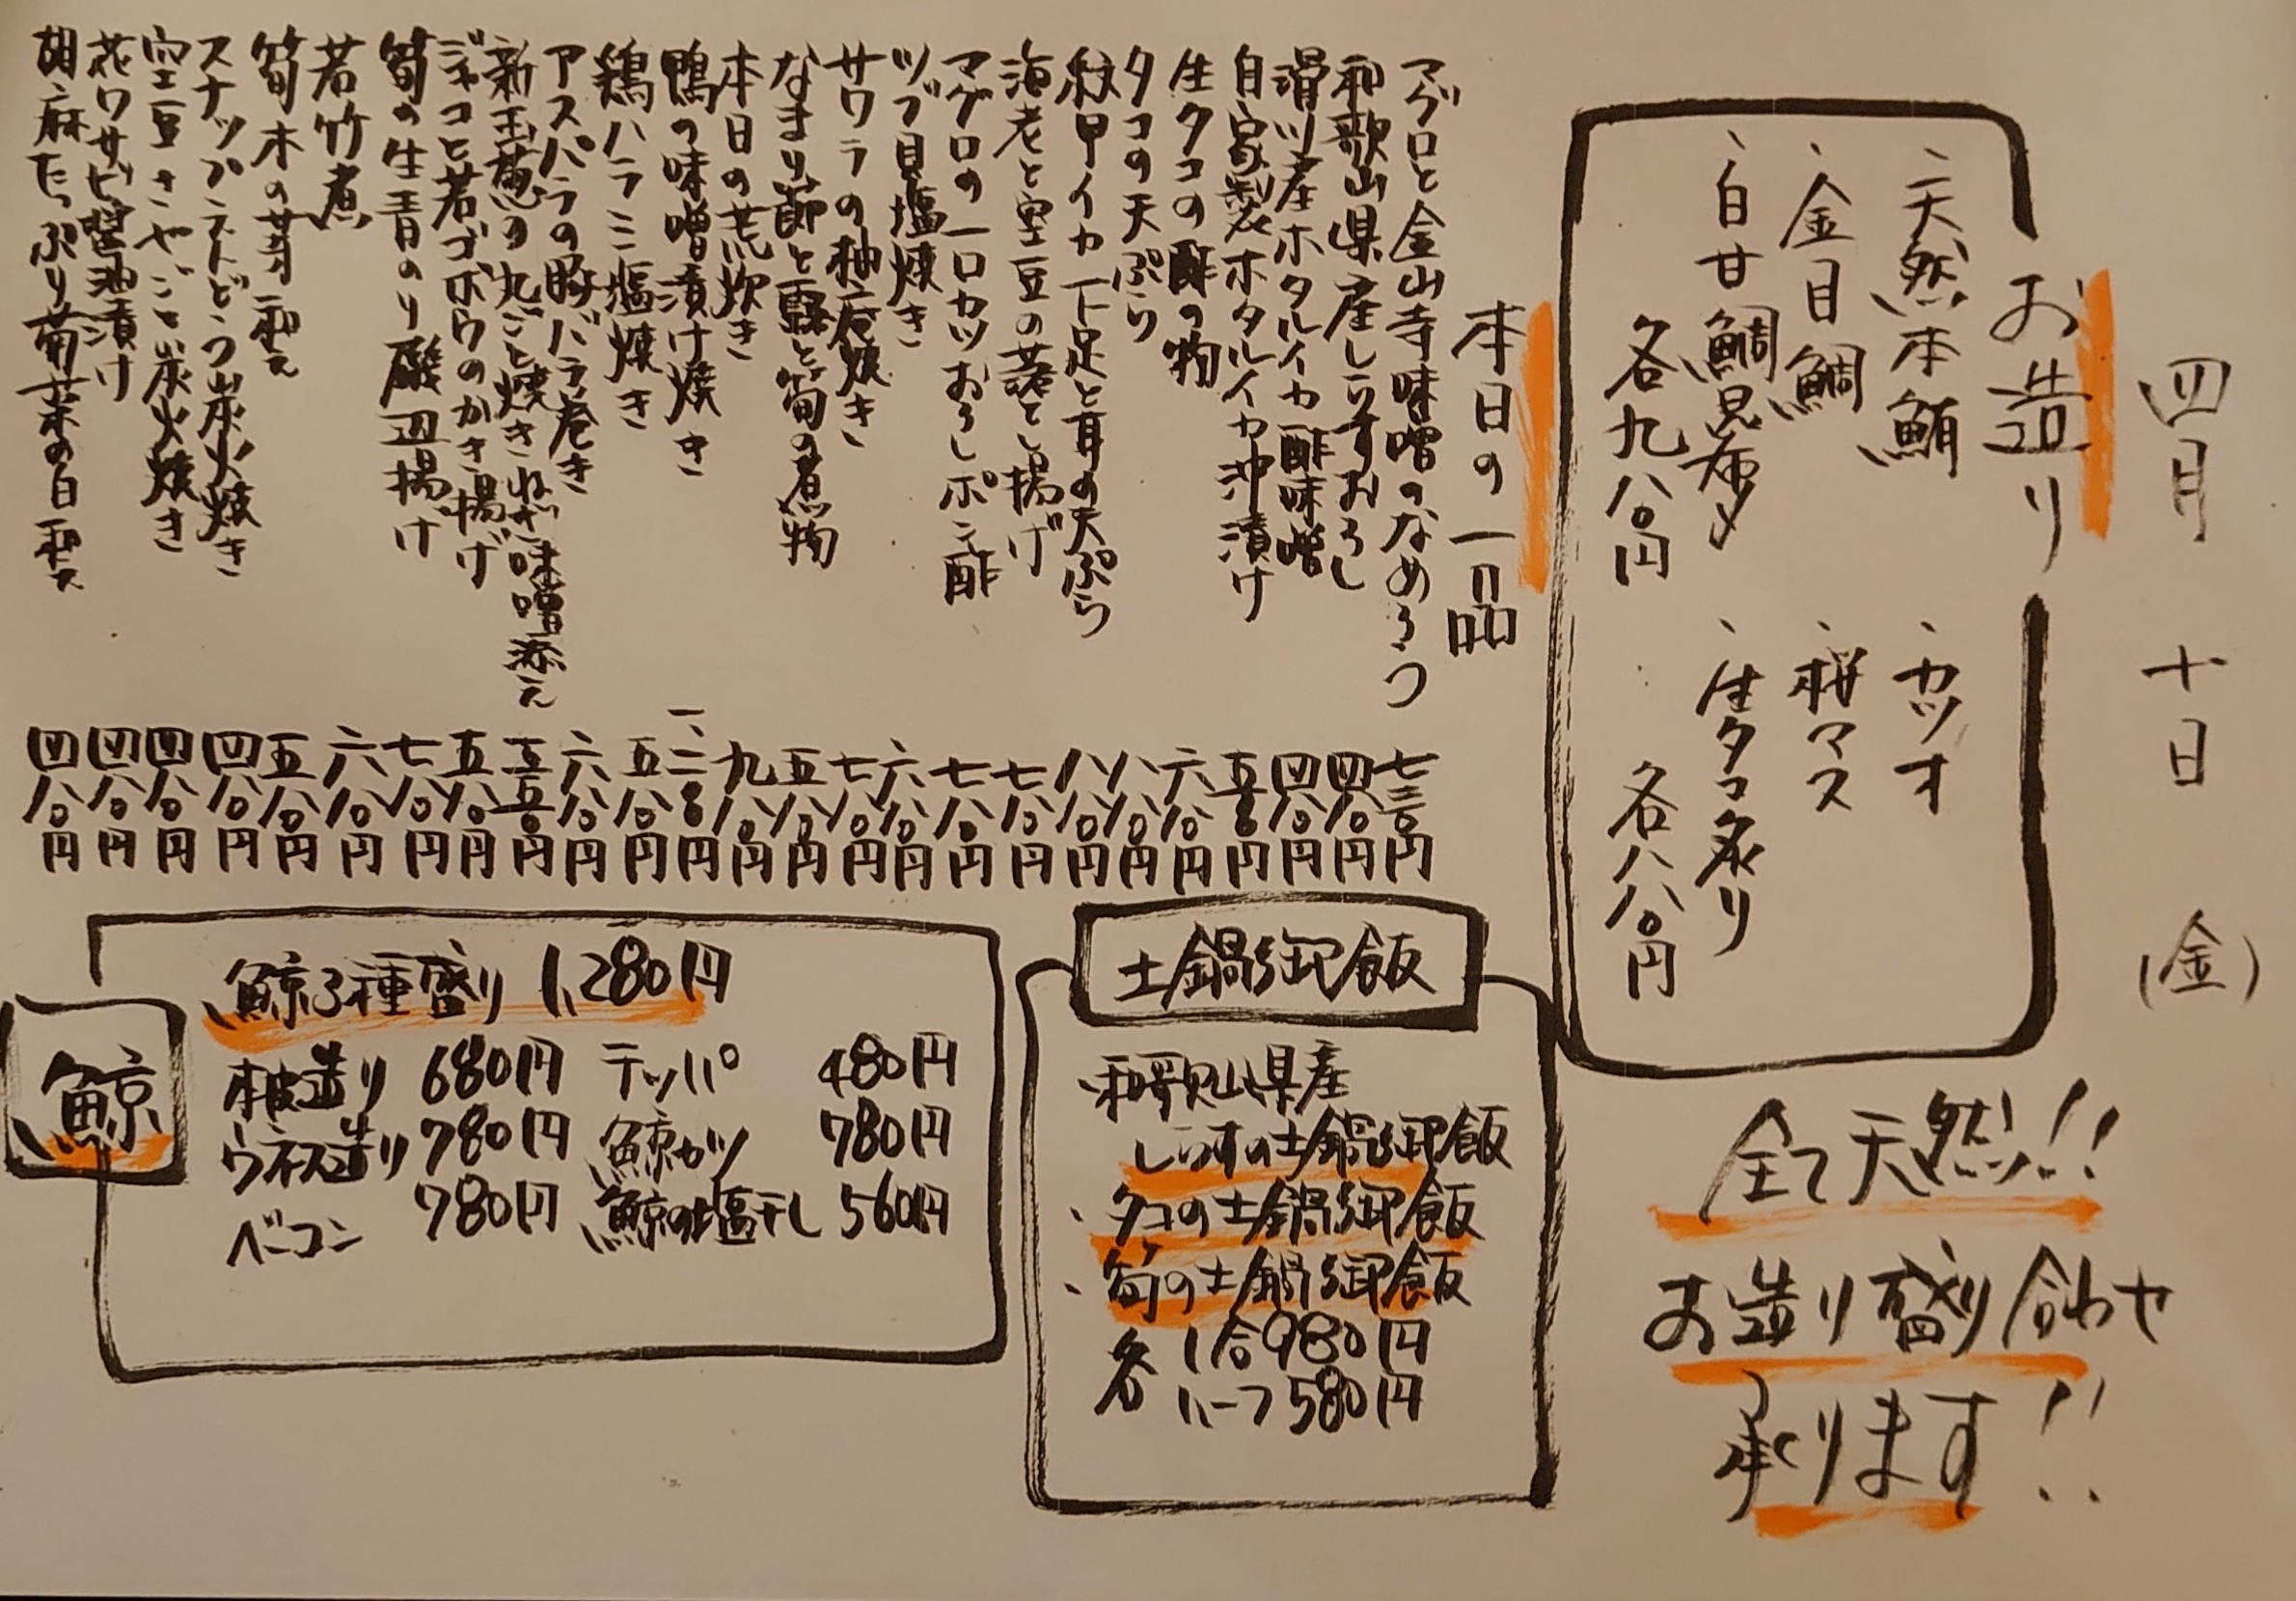 四月 十日 (金)
お造り
、天然本鮪
、金目鯛
、白甘鯛昆布〆
各九八〇円
、カツオ
、桜マス
、生タコ炙り
各八八〇円
全て天然!!
お造り盛り合わせ
承ります!!
本日の一品
マグロと金山寺味噌のなめろう 七三〇円
和歌山県産しらすおろし 四八〇円
滑川産ホタルイカ酢味噌 四八〇円
自家製ホタルイカ沖漬け
生タコの酢の物 六八〇円
タコの天ぷら 八八〇円
紋甲イカ下足と耳の天ぷら 八八〇円
海老と空豆の落とし揚げ 七八〇円
マグロの一口カツおろしポン酢 七八〇円
ツブ貝塩焼き 六八〇円
サワラの柚庵焼き 七八〇円
なまり節と蕗と筍の煮物 五八〇円
本日の荒炊き 九八〇円
鴨の味噌漬け焼き
鶏ハラミ塩焼き 五八〇円
アスパラの豚バラ巻き 六八〇円
新玉葱の丸ごと焼きねぎ味噌添え 五五〇円
ジャコと若ゴボウのかき揚げ 五八〇円
筍の生青のり磯辺揚け 七八〇円
若竹煮 六八〇円
筍木の芽和え 五八〇円
スナップえんどう炭火焼き 四八〇円
空豆さやごと炭火焼き 四八〇円
花ワサビ醤油漬け 四八〇円
胡麻たっぷり菊菜の白和え 四八〇円
土鍋御飯
、和歌山県産
しらすの土鍋御飯
、タコの土鍋御飯
、筍の土鍋御飯
各 1合980円
ハーフ580円
鯨
鯨3種盛り 1,280円
本皮造り 680円 テッパ 480円
ウネス造り 780円 鯨カツ 780円
ベーコン 780円 鯨の塩干し 560円